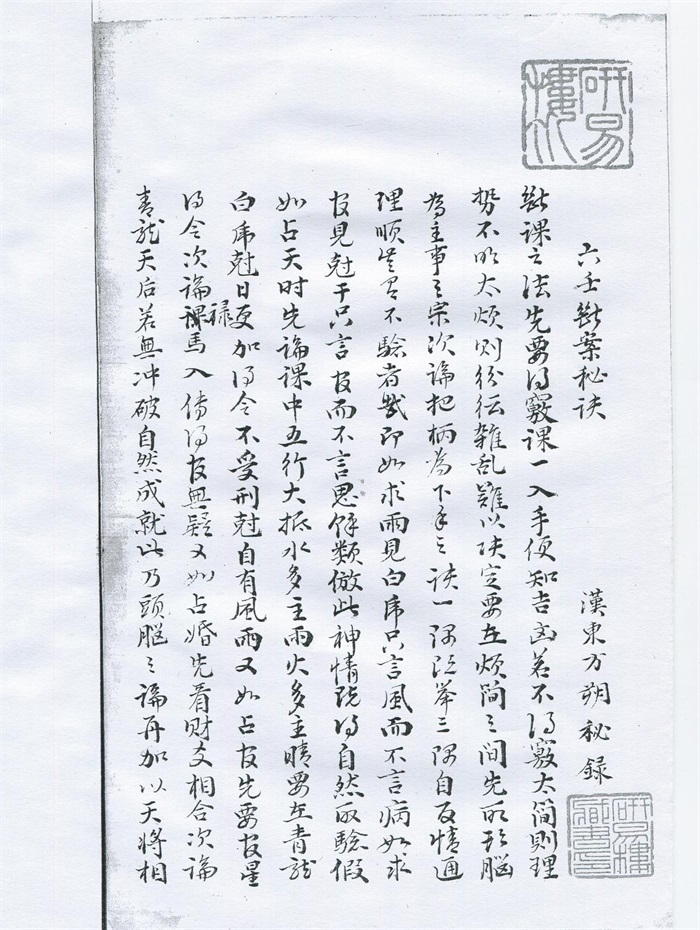 研易樓
六壬斷案秘诀 漢東方朔秘錄
研易樓藏書印
斷課之法先要得竅課一入手便知吉凶若不得竅太簡則理
势不明太煩則紛紜雜乱難以决定要在煩簡之間先明形腦
為主事之宗次論把柄為下手之诀一隅既举三隅自反情通
理順豈有不驗者哉即如求雨見白虎只言風而不言病如求
官見尅干只言官而不言鬼餘類倣此神情既得自然取驗假
如占天时先論課中五行大抵水多主雨火多主晴要在青龍
白虎尅日更加得令不受刑尅自有風雨又如占官先要官星
得令次論祿馬入傳得官無疑又如占婚先看財交相合次論
青龍天后若無冲破自然成就此乃頭腦之論再加以天將相